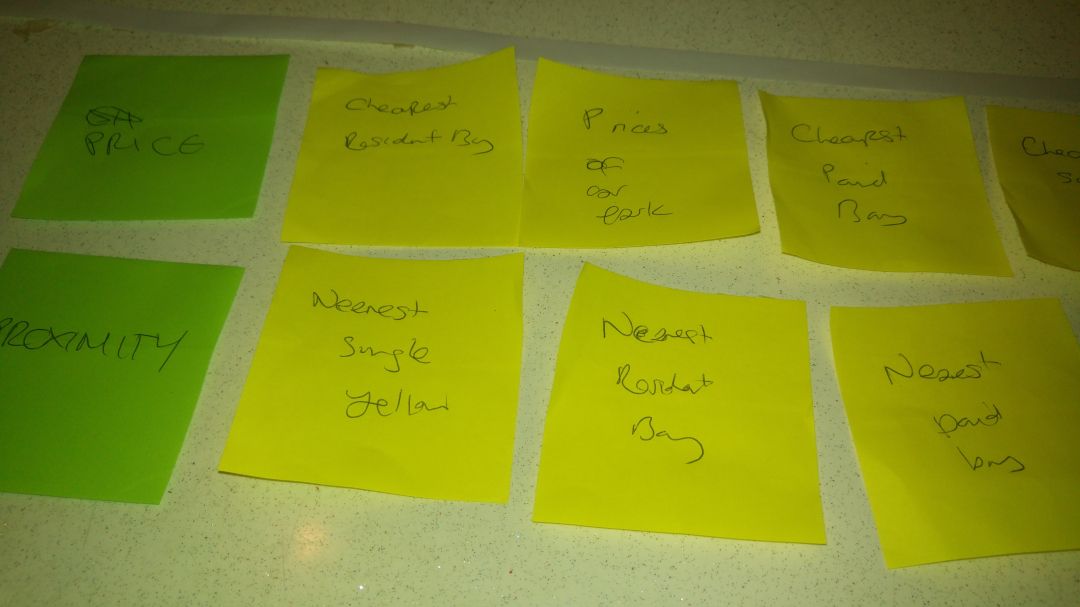 PRICE
Cheapest
Resident Bay
Prices
of
car
park
Cheapest
Paid
Bay
PROXIMITY
Nearest
Single
Yellow
Nearest
Resident
Bay
Nearest
paid
bay